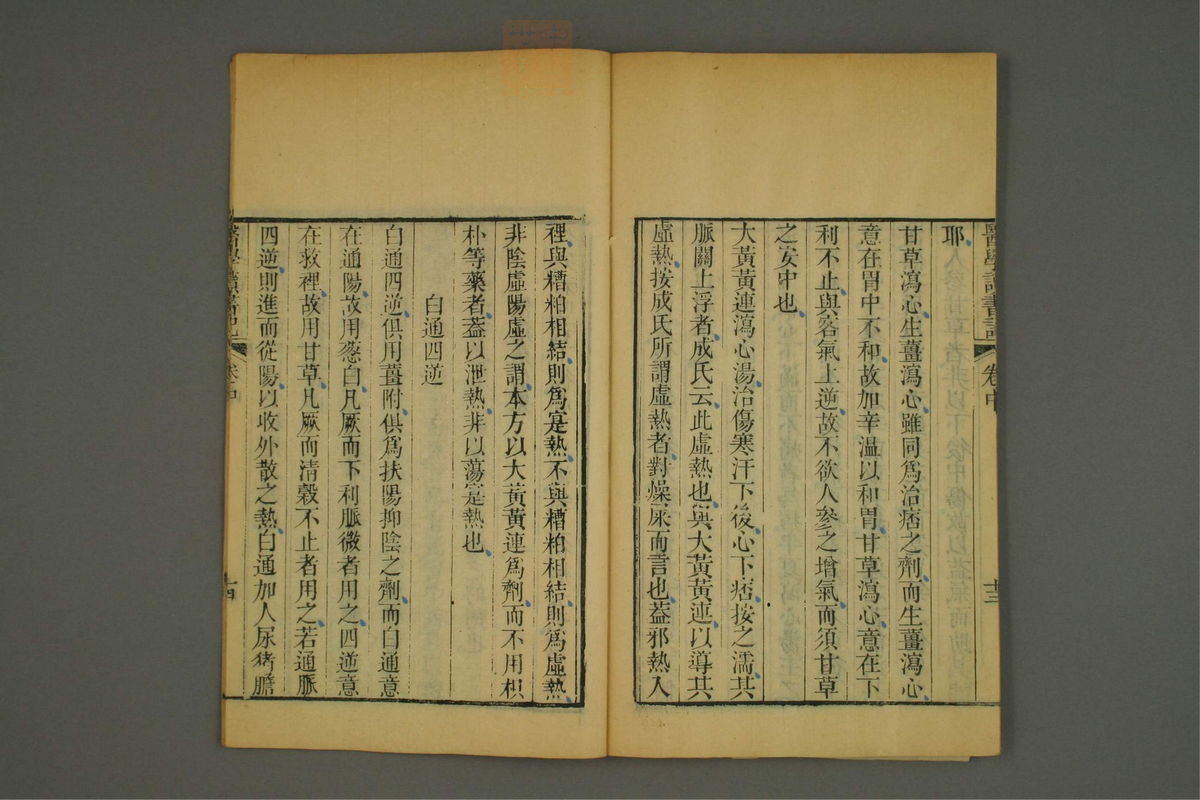 醫學讀書記 卷中 十三
耶
甘草瀉心生薑瀉心雖同爲治痞之劑而生薑瀉心
意在胃中不和故加辛温以和胃甘草瀉心意在下
利不止與客氣上逆故不欲人參之增氣而須甘草
之安中也
大黃黃連瀉心湯治傷寒汗下後心下痞按之濡其
脈關上浮者成氏云此虛熱也與大黃黃連以導其
虛熱按成氏所謂虛熱者對燥屎而言也蓋邪熱入
裡與糟粕相結則爲寔熱不與糟粕相結則爲虛熱
非陰虛陽虛之謂本方以大黃黃連爲劑而不用枳
朴等藥者蓋以泄熱非以蕩寔熱也
白通四逆
白通四逆俱用薑附俱爲扶陽抑陰之劑而白通意
在通陽故用葱白凡厥而下利脈微者用之四逆意
在救裡故用甘草凡厥而清穀不止者用之若通脈
四逆則進而從陽以收外散之熱白通加人尿猪膽
醫學讀書記 卷中 十四